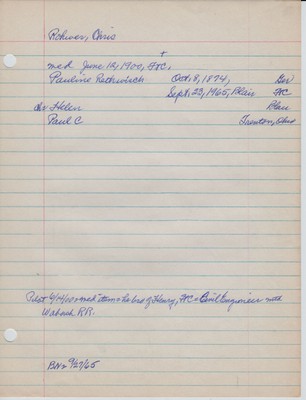 Rohwer, Chris
+
med June 12, 1900, FC,
Pauline Rethwisch Oct. 8, 1874, Ger
Sept. 23, 1965, Blair FC
ch: Helen Blair
Paul C Trenton, Ohio
Pilot 6/14/00 = med item = he bro of Henry, FC = Civil Engineer with
Wabash RR.
BN= 9/27/65